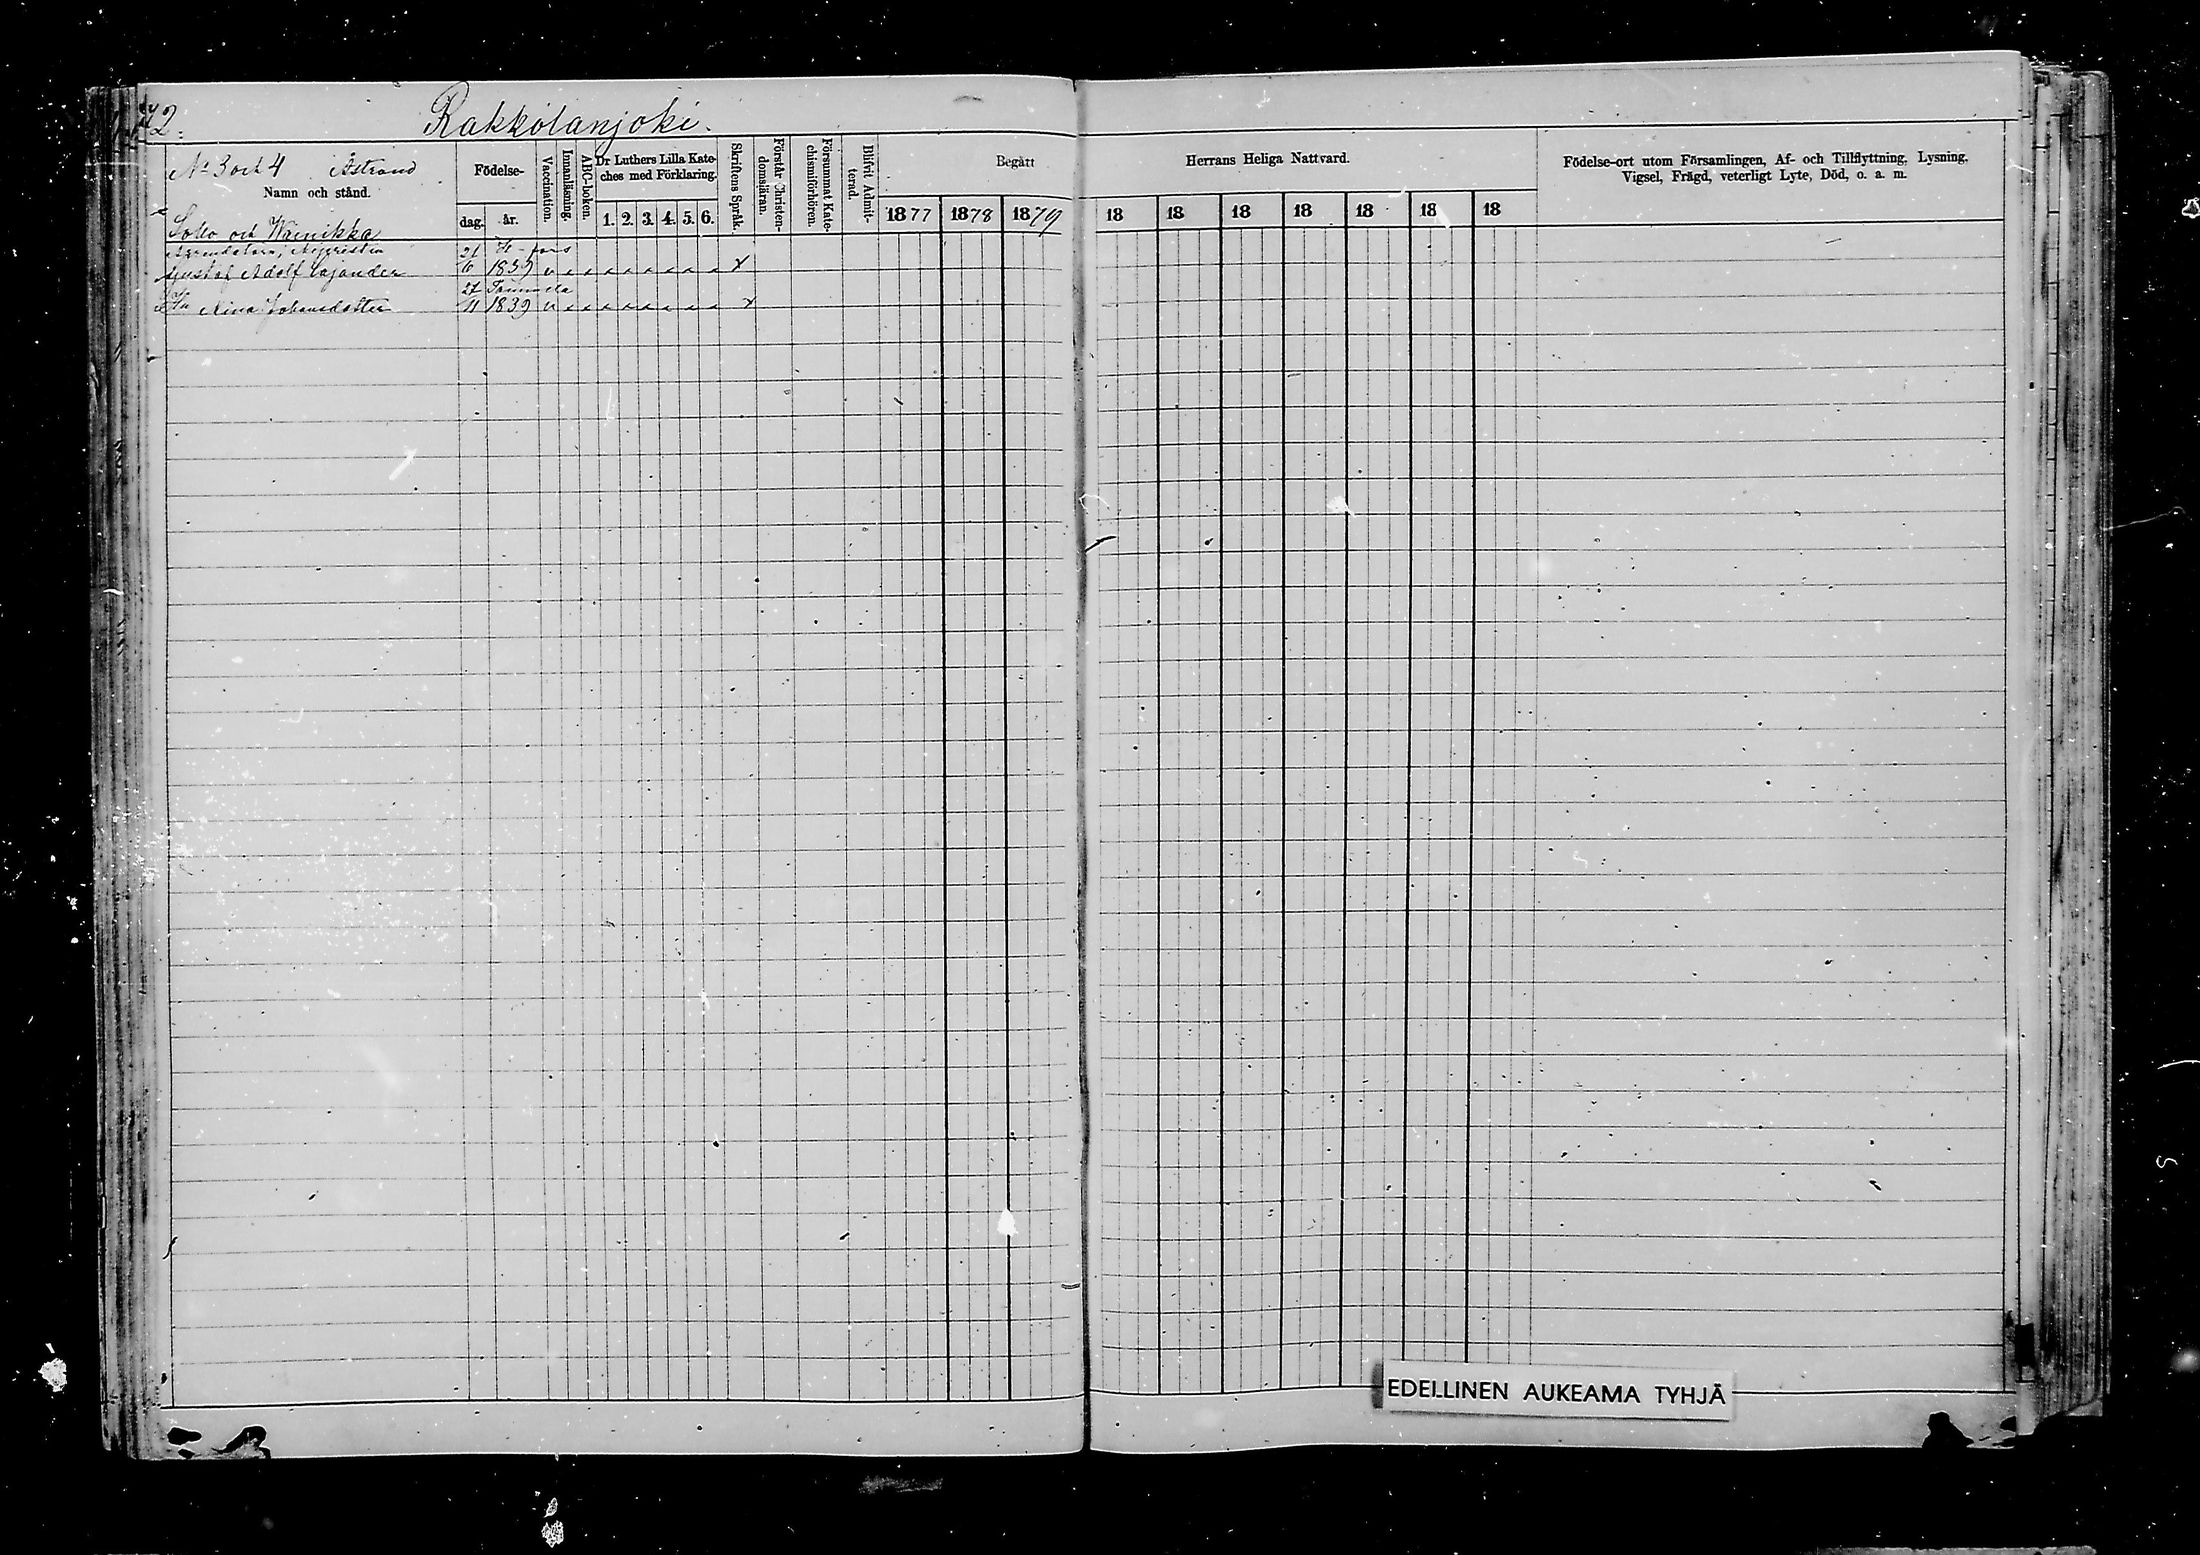 72.
Rakkolanjoki.
No 3 och 4 Åstrand
Namn och stånd.
Födelse-
dag. år.
Vaccination.
Innanläsning.
ABC-boken.
Dr Luthers Lilla Kate-
ches med Förklaring.
1. 2. 3. 4. 5. 6.
Skriftens Språk.
Förstår Christen-
domsläran.
Försummat Kate-
chismiförhören.
Blifvit Admit-
terad.
Begått
1877 1878 1879
Soko och Wainikka
21 H-fors
Gustaf Adolf Cajander 6 1839 v x x x x x x x x x
27
Hu Nina Johansdotter 11 1839 v x x x x x x x x x
Herrans Heliga Nattvard.
18 18 18 18 18 18 18
Födelse-ort utom Församlingen, Af- och Tillflyttning. Lysning.
Vigsel, Frägd, veterligt Lyte, Död, o. a. m.
EDELLINEN AUKEAMA TYHJÄ